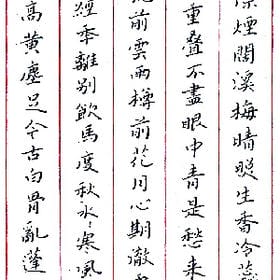 煙闊溪梅晴照生香冷
重疊不盡眼中青是愁來
前雲雨樽前花月心期徹
經年離別飲馬度秋水〻寒風
高黃塵足今古白骨亂蓬